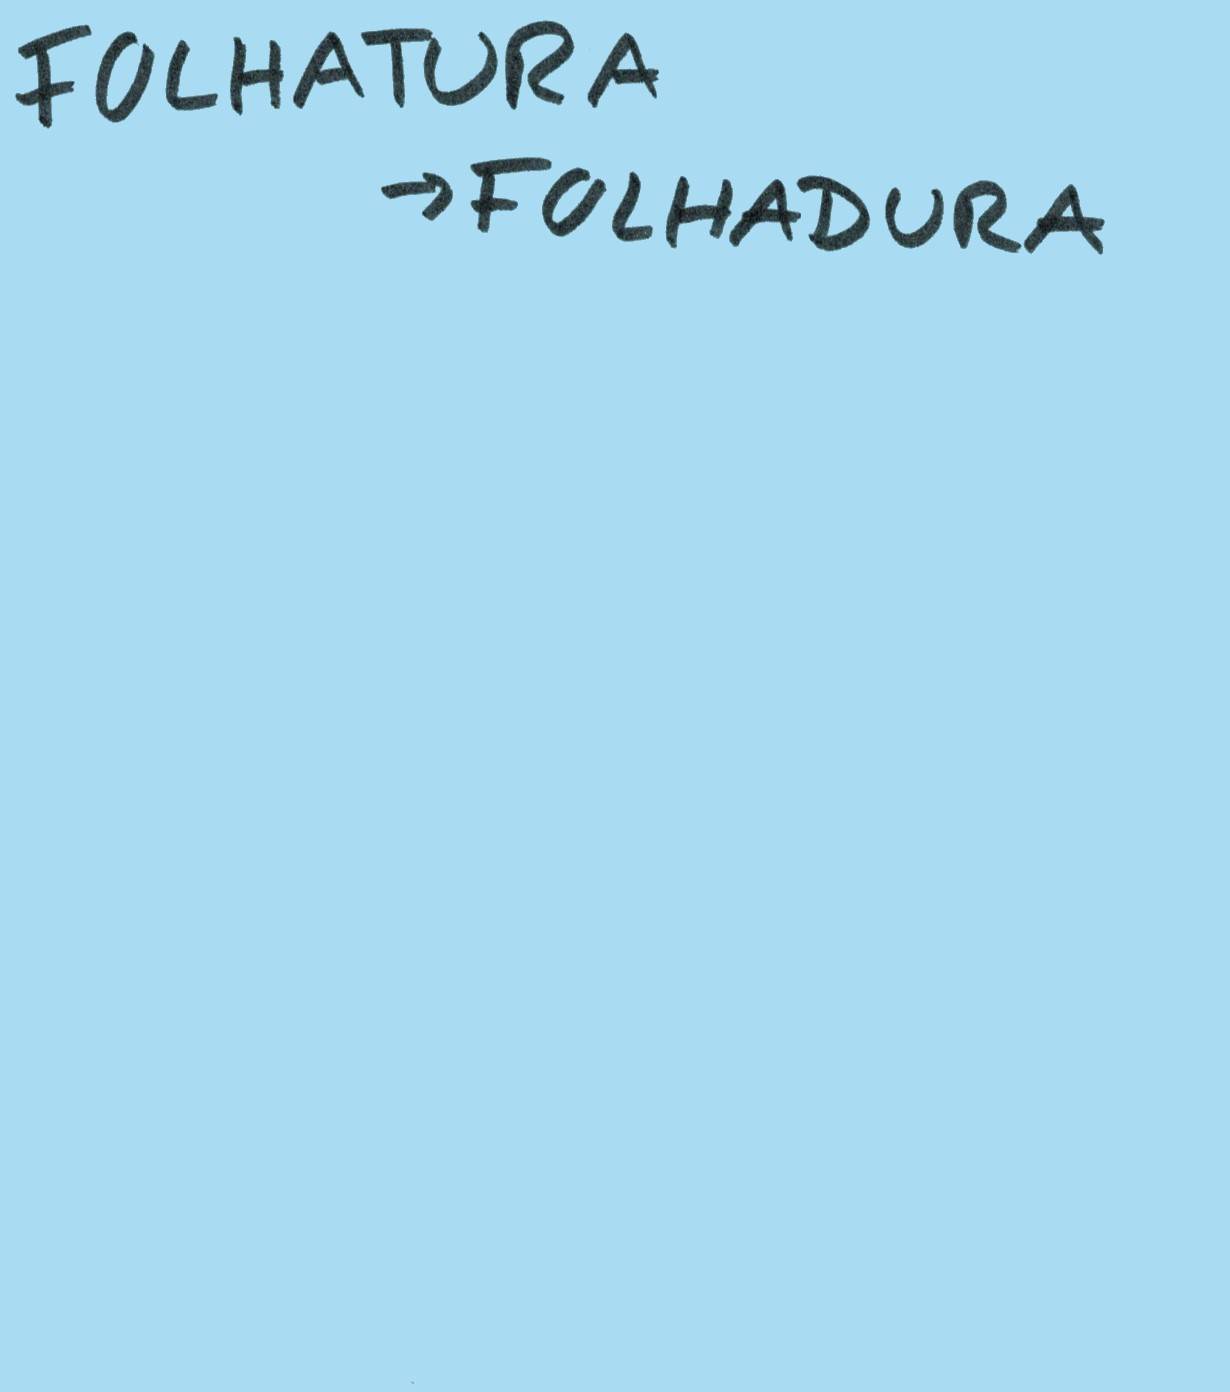 FOLHATURA
→FOLHADURA